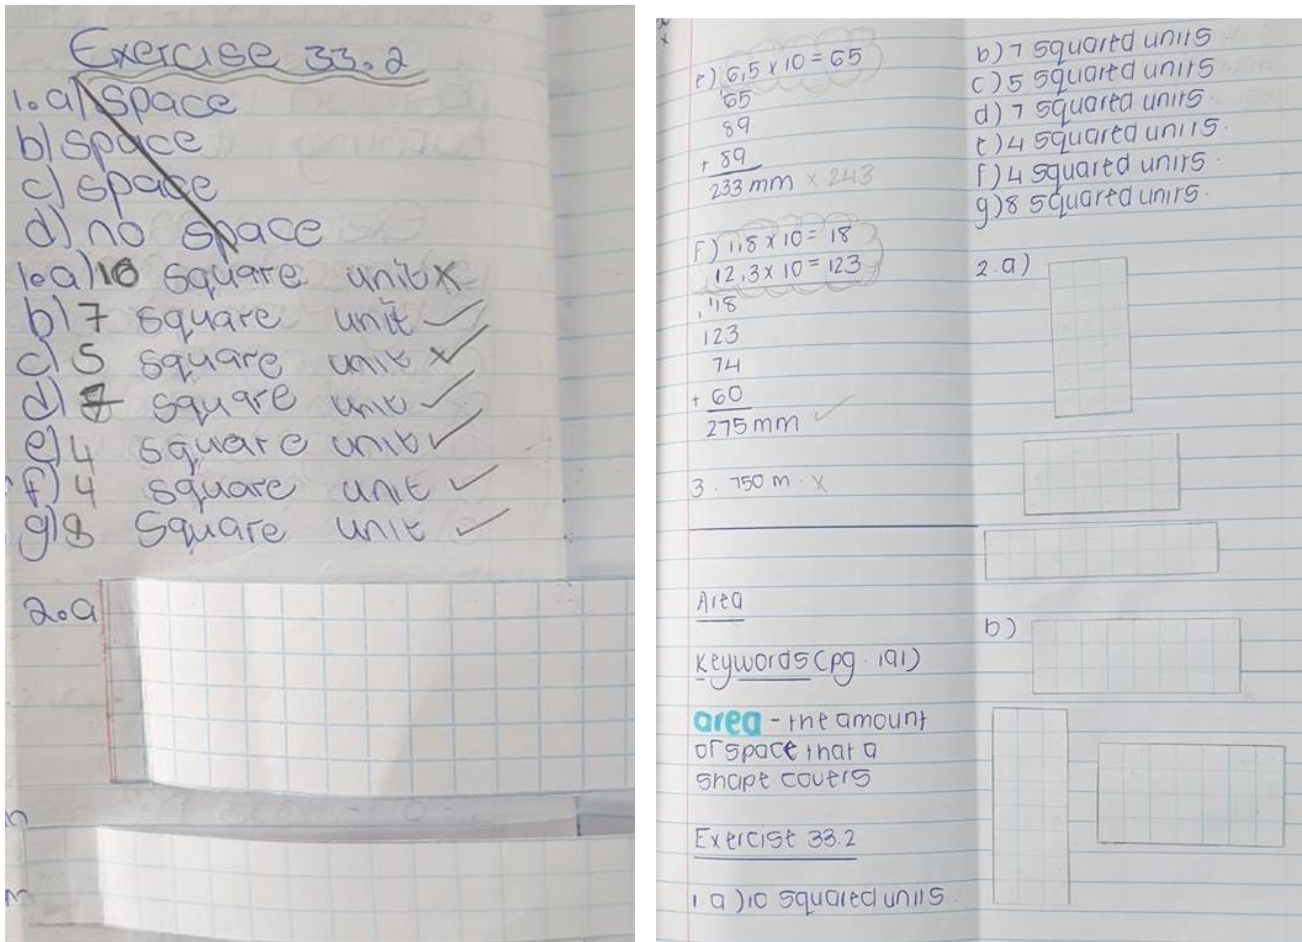 Exercise 33.2
1. a) space
b) space
c) space
d) no space
1. a) 10 square unit ×
b) 7 square unit ✓
c) 5 square unit ×✓
d) 7 square unit ✓
e) 4 square unit ✓
f) 4 square unit ✓
g) 8 Square unit ✓
2. a
e) 6,5 × 10 = 65
65
89
+ 89
233 mm × 243
F) 1,8 × 10 = 18
12,3 × 10 = 123
18
123
74
+ 60
275 mm ✓
3. 750 m. ×
Area
Keywords (pg. 191)
area - the amount
of space that a
shape covers
Exercise 33.2
1 a) 10 squared units.
b) 7 squared units.
c) 5 squared units
d) 7 squared units.
e) 4 squared units.
f) 4 squared units.
g) 8 squared units.
2. a)
b)